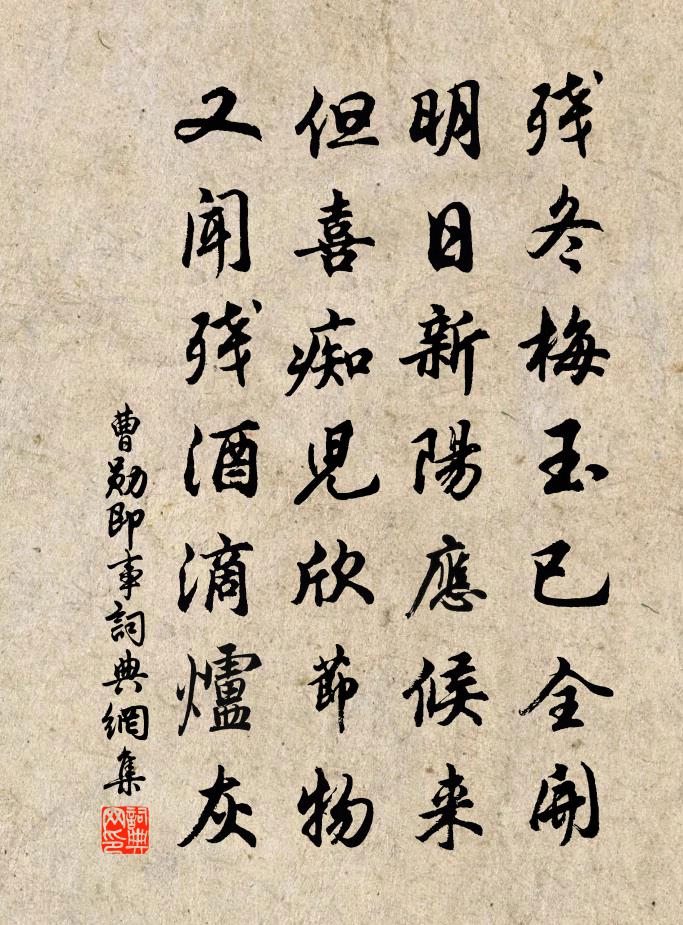 残冬梅玉已全開
明日新陽應候来
但喜痴児欣節物
又聞残酒滴爐灰
曹勛即事詞典網集
詞典网印